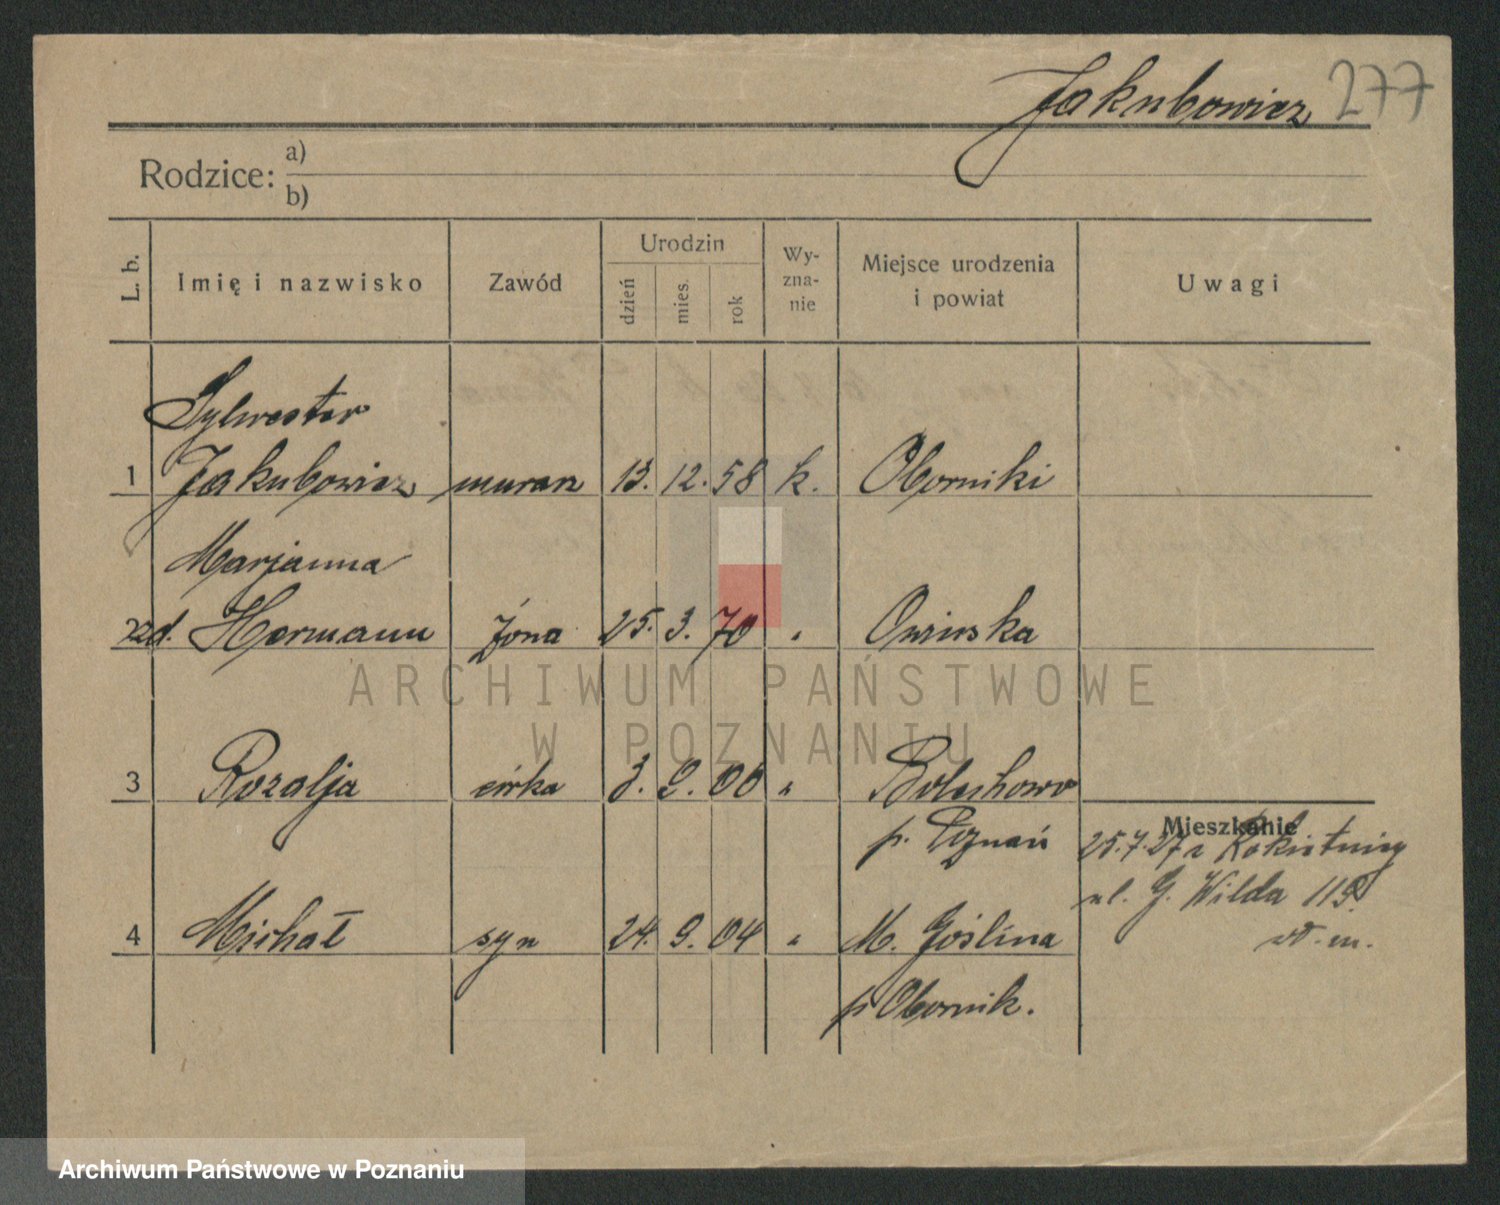 Jakubowicz 277
Rodzice: a)
b)
L. b. Imię i nazwisko Zawód Urodzin dzień mies. rok Wy-zna-nie Miejsce urodzenia i powiat Uwagi
Sylwester
1 Jakubowicz murarz 13. 12. 58 k. Oborniki
Marjanna
2 zd. Hermann żona 25. 3. 70 " Owinska
3 Rozalja córka 3. 9. 06 " Bolechowo
p. Poznań
Mieszkanie
25.7.27 z Rokietnicy
ul. G. Wilda 115
4 Michał syn 24. 9. 04 " M. Goślina
wł. m.
p. Obornik.
ARCHIWUM PAŃSTWOWE
W POZNANIU
Archiwum Państwowe w Poznaniu